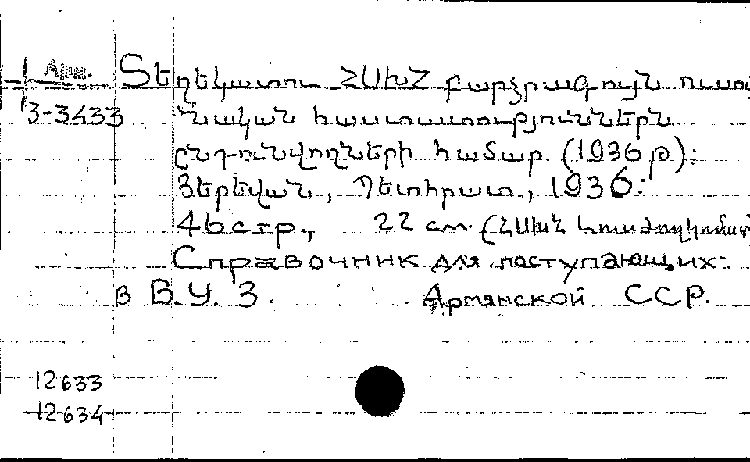 Տեղեկատու ՀՍԽՀ բարձրագույն ուսում
3-3433 նական հաստատություններն
ընդունվողների համար. (1936 թ.):
Յերեվան, Պետհրատ., 1936:
46 стр., 22 см. (ՀՍԽՀ
Справочник для поступающих
в В.У.З. Армянской ССР.
12633
12634